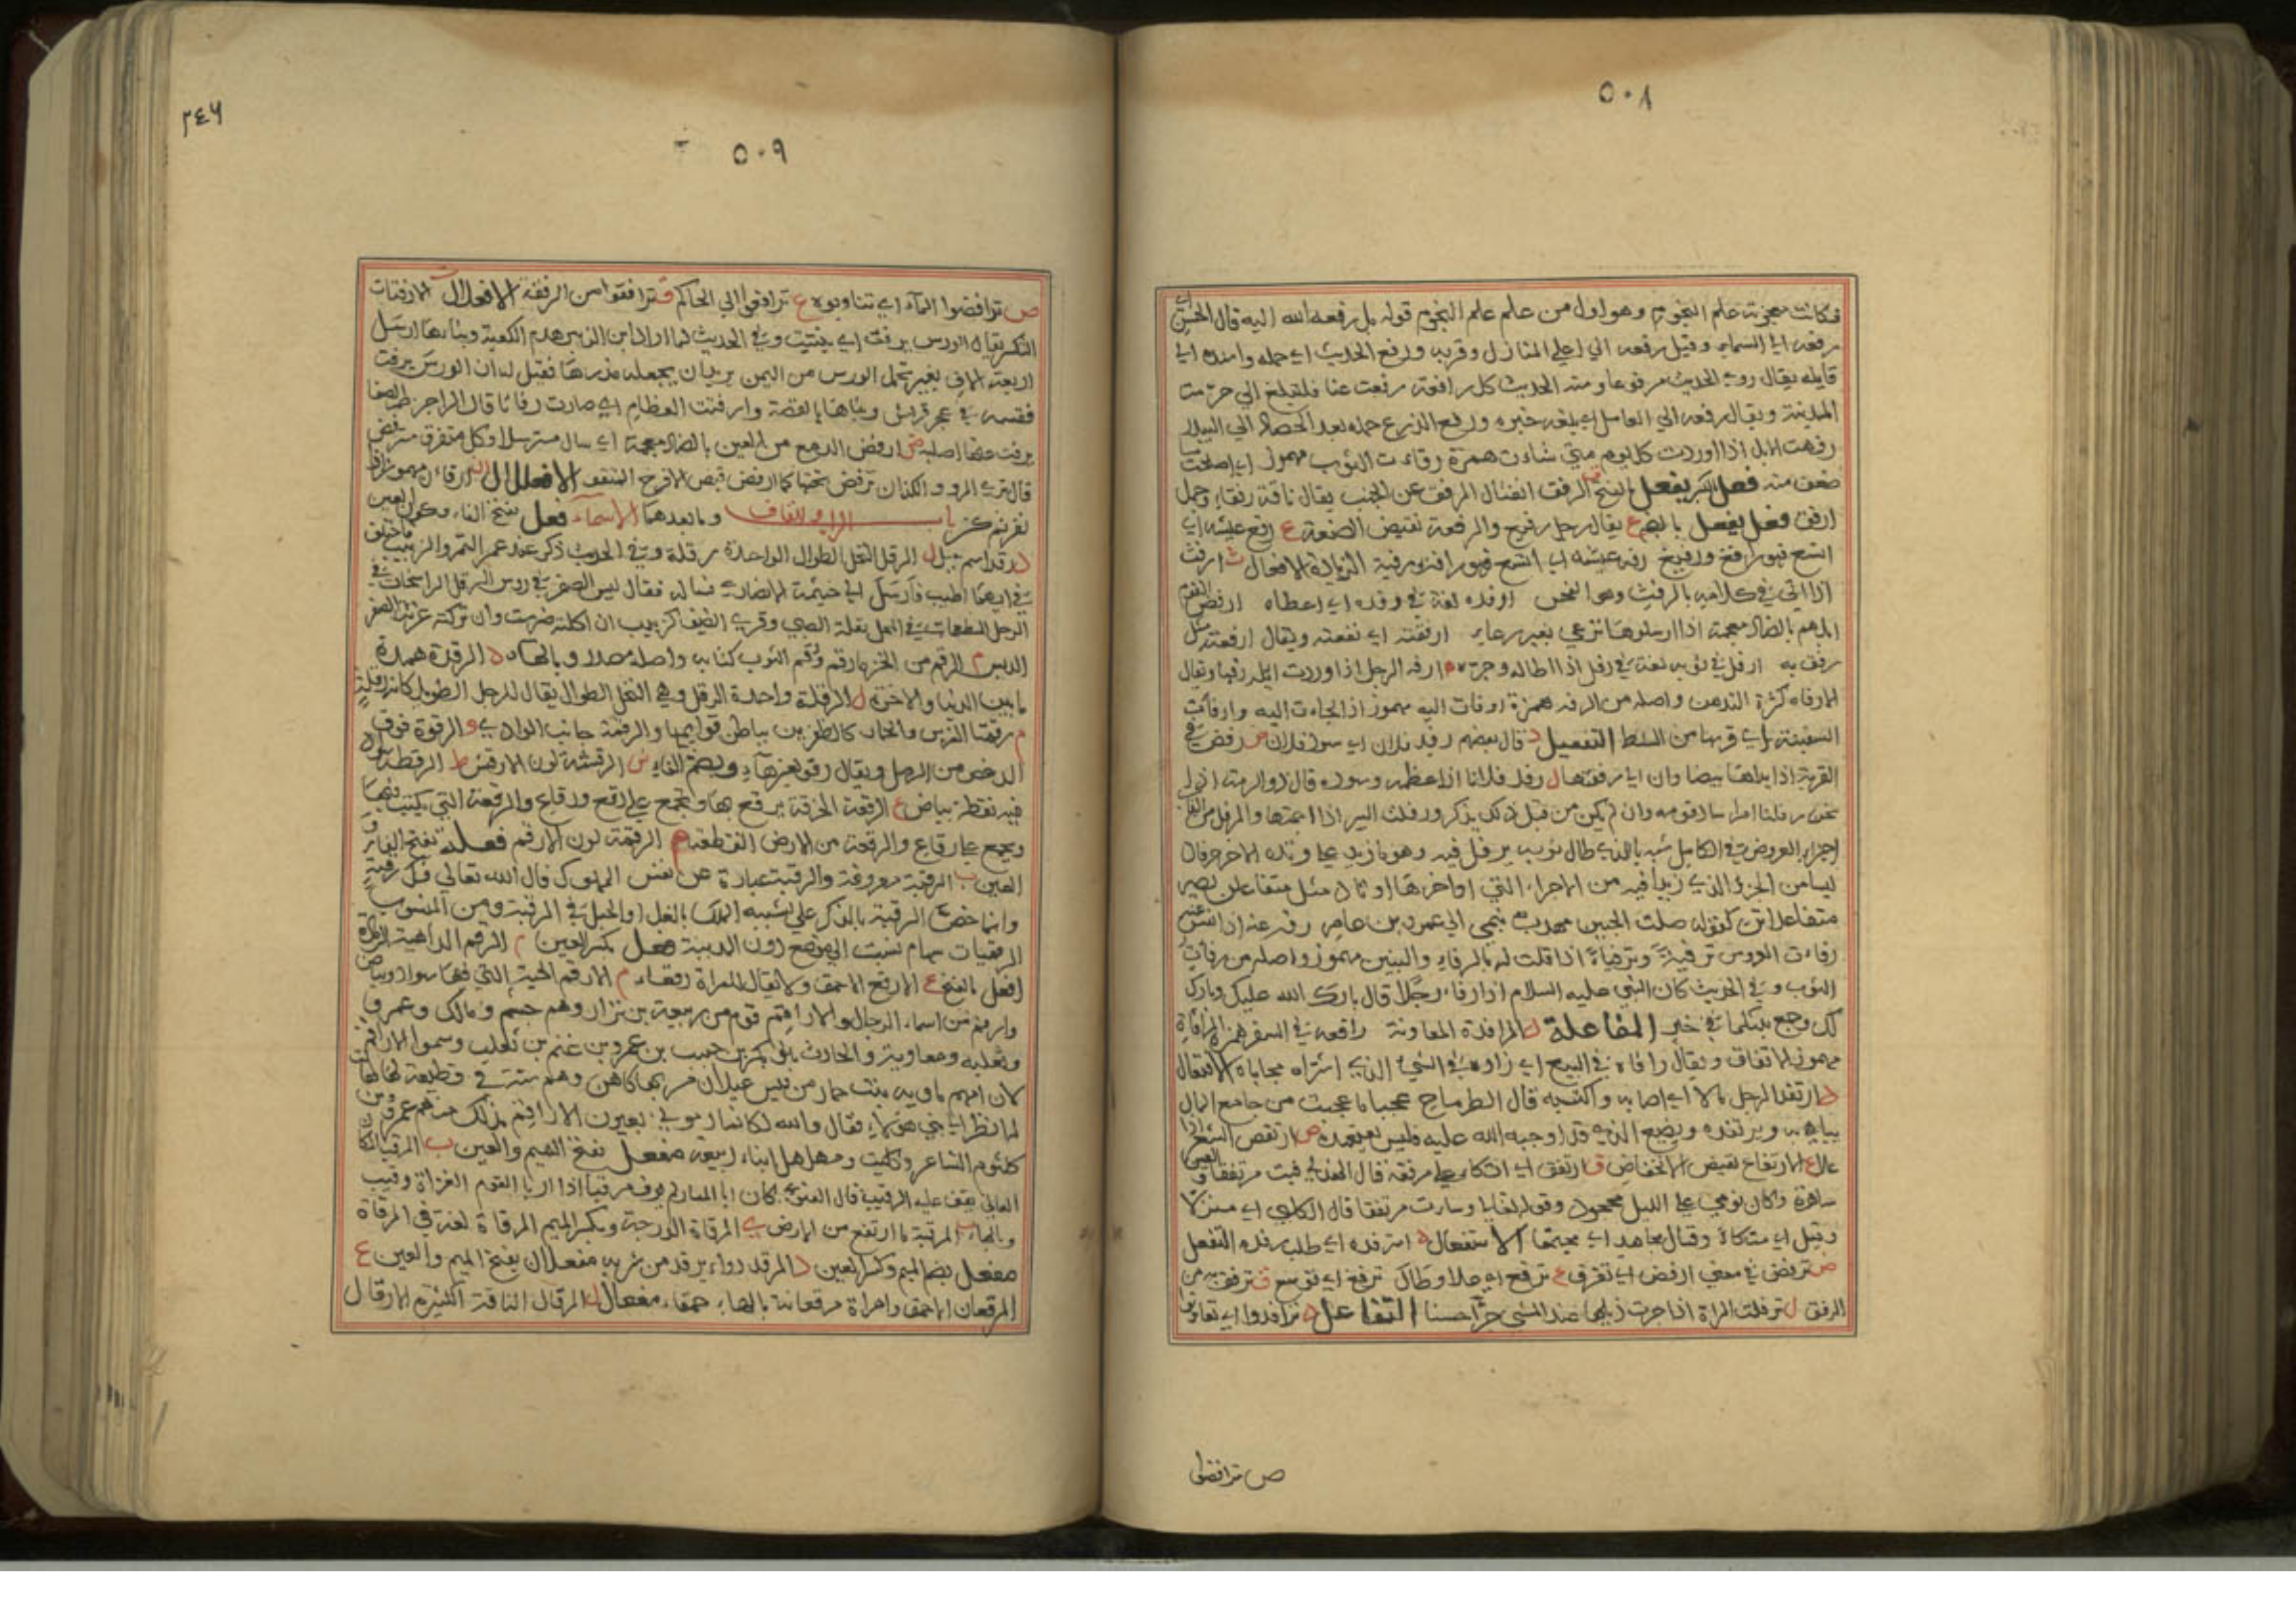 ٥٠٨
فكانت معجزته علم النجوم وهو اول من علم علم النجوم قوله بل رفعه الله اليه قال الحسن اي
رفعه الى السماء وقيل رفعه الى اعلى المنازل وقربه ورفع الحديث اي حمله واسنده الى
قايله يقال روى الحديث مرفوعا ومنه الحديث كل رافعة رفعت عنا فلتبلغ اني حرمت
المدينة ويقال رفعه الى العامل اي بلغه خبره ورفع الزرع حمله بعد الحصاد الى البيدر
رفهت الابل اذا وردت كل يوم متى شاءت همزة رفاءت الثوب مهموز اي اصلحت
ضعف منه فعل بالكسر يفعل بالفتح ق الرفق انفتال المرفق عن الجنب يقال ناقة رفقاء وجمل
ارفق فعل يفعل بالضم ع يقال رجل رفيع والرفعة نقيض الضعة ع رفغ عيشه اي
اتسع فهو رافغ ورفيغ رفه عيشه اي اتسع فهو رافه ورفيه الزيادة الافعال ث ارفث
اذا اتى في كلامه بالرفث وهو الفحش ارفده لغة في رفده اي اعطاه ارفض القوم
ابلهم بالضاد معجمة اذا ارسلوها ترعى بغير رعاء ارفقته اي نفعته ويقال ارفقته مثل
رفق به ارفل في ثوبه لغة في رفل اذا اطاله وجره ه ارفه الرجل اذا وردت ابله رفها ويقال
الارفاه كثرة التدهن واصله من الرفه همزة ارفات اليه مهموز اذا لجاءت اليه وارفاءت
السفينة اي قربتها من الشط التفعيل د قال بعضهم رفد فلان اي سود فلان ض رفض في
القربة اذا ابقى بها بيضا وان ايا رفقتها ل رفل فلانا اذا عظمه وسوده قال ذو الرمة اذا
نحن رفلنا امرا ساد قومه وان لم يكن من قبل ذلك يذكر ورفلت البير اذا اجمتها والمرفل من القاب
اجزاء العروض في الكامل شبه بالذي طال ثوبه يرفل فيه وهو ما زيد على وتده الاخر حرفان
ليسا من الجزو الذي زيدا فيه من الاجزاء التي اواخرها اوتاد مثل متفاعلن يصير
متفاعلاتن كقوله صلت الجبين مهذب ينمي الى عمرو بن عامر رفه عنه اذا نفس عنه
رفاءت العروس ترفية وترفياة اذا قلت له بالرفاء والبنين مهموز واصله من رفاءت
الثوب وفي الحديث كان النبي عليه السلام اذا رفاء رجلا قال بارك الله عليك وبارك
لك وجمع بينكما في خير المفاعلة د المرافدة المعاونة رافقه في السفر همزة المرافاة
مهموز الاتفاق ويقال رافاه في البيع اي زاده في الشيء الذي اشتراه محاباة الافتعال
د ارتفد الرجل مالا اي اصابه واكتسبه قال الطرماح عجبا ما عجبت من جامع المال
يباهي به ويرتفده ويضيع الذي قد اوجبه الله عليه فليس يعتهده ص ارتفص السعر اذا
علا ع الارتفاع نقيض الانخفاض ق ارتفق اي اتكا على مرفقه قال الهذلي فبت مرتفقا والعين
ساهرة وكان نومي على الليل محجود وقوله تعالى وساءت مرتفقا قال الكلبي اي منزلا
وقيل اي متكاة وقال مجاهد اي مجتمعا الاستفعال د استرفده اي طلب رفده التفعل
ص ترفض في معنى ارفض اي تفرق ع ترفع اي علا وطال ترفغ اي توسع ق ترفق به من
الرفق ل ترفلت المراة اذا جرت ذيلها عند المشي جرا حسنا التفاعل د ترافدوا اي تعاونوا
ص ترافضوا
٥٠٩
٣٤٦
ص ترافصوا الماء اي تناوبوه ع ترافعوا الى الحاكم ق ترافقوا من الرفقة الافعلال ث الارفتات
التكسر يقال الورس يرفت اي يتفتت وفي الحديث لما اراد ابن الزبير هدم الكعبة وبناءها ارسل
اربعة الاف بعير تحمل الورس من اليمن يريد ان يجعله مدرها فقيل له ان الورس يرفت
فقسمه في عجز قريش وبناها بالقصة وارفتت العظام اي صارت رفاتا قال الراجز صم الصفا
يرفت عنها اصله ض ارفض الدمع من العين بالضاد معجمة اي سال مسترسلا وكل متفرق مرفض
قال ترى المرو والكذان ترفض تحتها كما ارفض قيض الافرخ المتفقد الافعلال ارفاءن مهموز اذا
نفر ثم سكن باب الراء والقاف وما بعدهما الاسماء فعل بفتح الفاء وسكون العين
د رقد اسم جبل ل الرقل النخل الطوال الواحدة رقلة وفي الحديث ذكر عند عمر التمر والزبيب فاختلف
في ايهما اطيب فارسل الى حثمة الانصاري فساله فقال ليس الصقر في رؤس الرقل الراسخات في
الوحل المطعمات في المحل تعلة الصبي وقرى الضيف كزبيب ان اكلته ضرست وان تركته غرثت الصقر
الدبس م الرقم من الخز ما رقم ورقم الثوب كتابه واصله مصدر وبالهاء د الرقدة همدة
ما بين الدنيا والاخرة ل الرقلة واحدة الرقل وهي النخل الطوال يقال للرجل الطويل كانه رقلة
م رقمتا الفرس والحمار كالظفرين بباطن قوايمها والرقمة جانب الوادي و الرقوة فويق
الدعص من الرمل ويقال رقو بغير هاء وبضم الفاء ش الرقشة لون الارقش ط الرقطة سواد
فيه نقطة بياض ع الرقعة الخرقة يرقع بها وتجمع على رقع ورقاع والرقعة التي يكتب فيها
ويجمع على رقاع والرقعة من الارض القطعة م الرقمة لون الارقم فعلة بفتح الفاء و
العين ب الرقبة معروفة والرقبة عبارة عن نفس المملوك قال الله تعالى فك رقبة
وانما خصت الرقبة بالذكر على تشبيه الملك بالغل او الحبل في الرقبة ومن المنسوب
الرقميات سهام نسبت الى موضع دون المدينة فعل بكسر العين م الرقم الداهية الرقمة
افعل بالفتح ع الارقع الاحمق ولا يقال للمراة رقعاء م الارقم الحية التي فيها سواد وبياض
وارقم من اسماء الرجال والاراقم قوم من ربيعة بن نزار وهم جشم ومالك وعمرو
وثعلبه ومعاوية والحارث بنو بكر بن حبيب بن عمرو بن غنم بن تغلب وسموا الاراقم
لان امهم ماويه بنت حمار من قيس عيلان مر بها كاهن وهم ستة في قطيفة لها فقالت
لها انظر الى بني هؤلاء فقال والله لكانما رموني بعيون الاراقم فذلك منهم عمرو بن
كلثوم الشاعر وكليب ومهلهل ابناء ربيعة مفعل بفتح الميم والعين ب المرقب المكان
العالي يقف عليه الرقيب قال الغنوي كان ابا المغوار لم يوف مرقبا اذا ربا القوم الغزاة رقيب
وبالهاء ب المرقبة ما ارتفع من الارض ي المرقاة الدرجة وبكسر الميم المرقاة لغة في المرقاة
مفعل بضم الميم وكسر العين د المرقد دواء يرقد من شربه مفعلان بفتح الميم والعين ع
المرقعان الاحمق وامراة مرقعانة بالهاء حمقاء مفعال ل المرقال الناقة الكثيرة الارقال